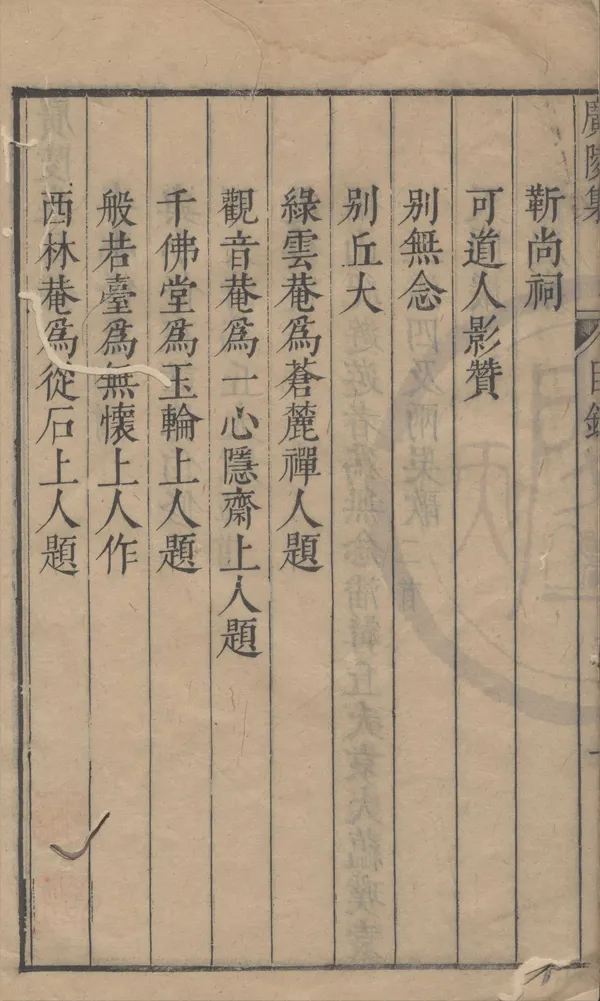 廣陵集 目錄
靳尚祠
可道人影贊
別無念
別丘大
綠雲菴爲蒼麓禪人題
觀音菴爲一心隱齋上人題
千佛堂爲玉輪上人題
般若臺爲無懷上人作
西林菴爲從石上人題